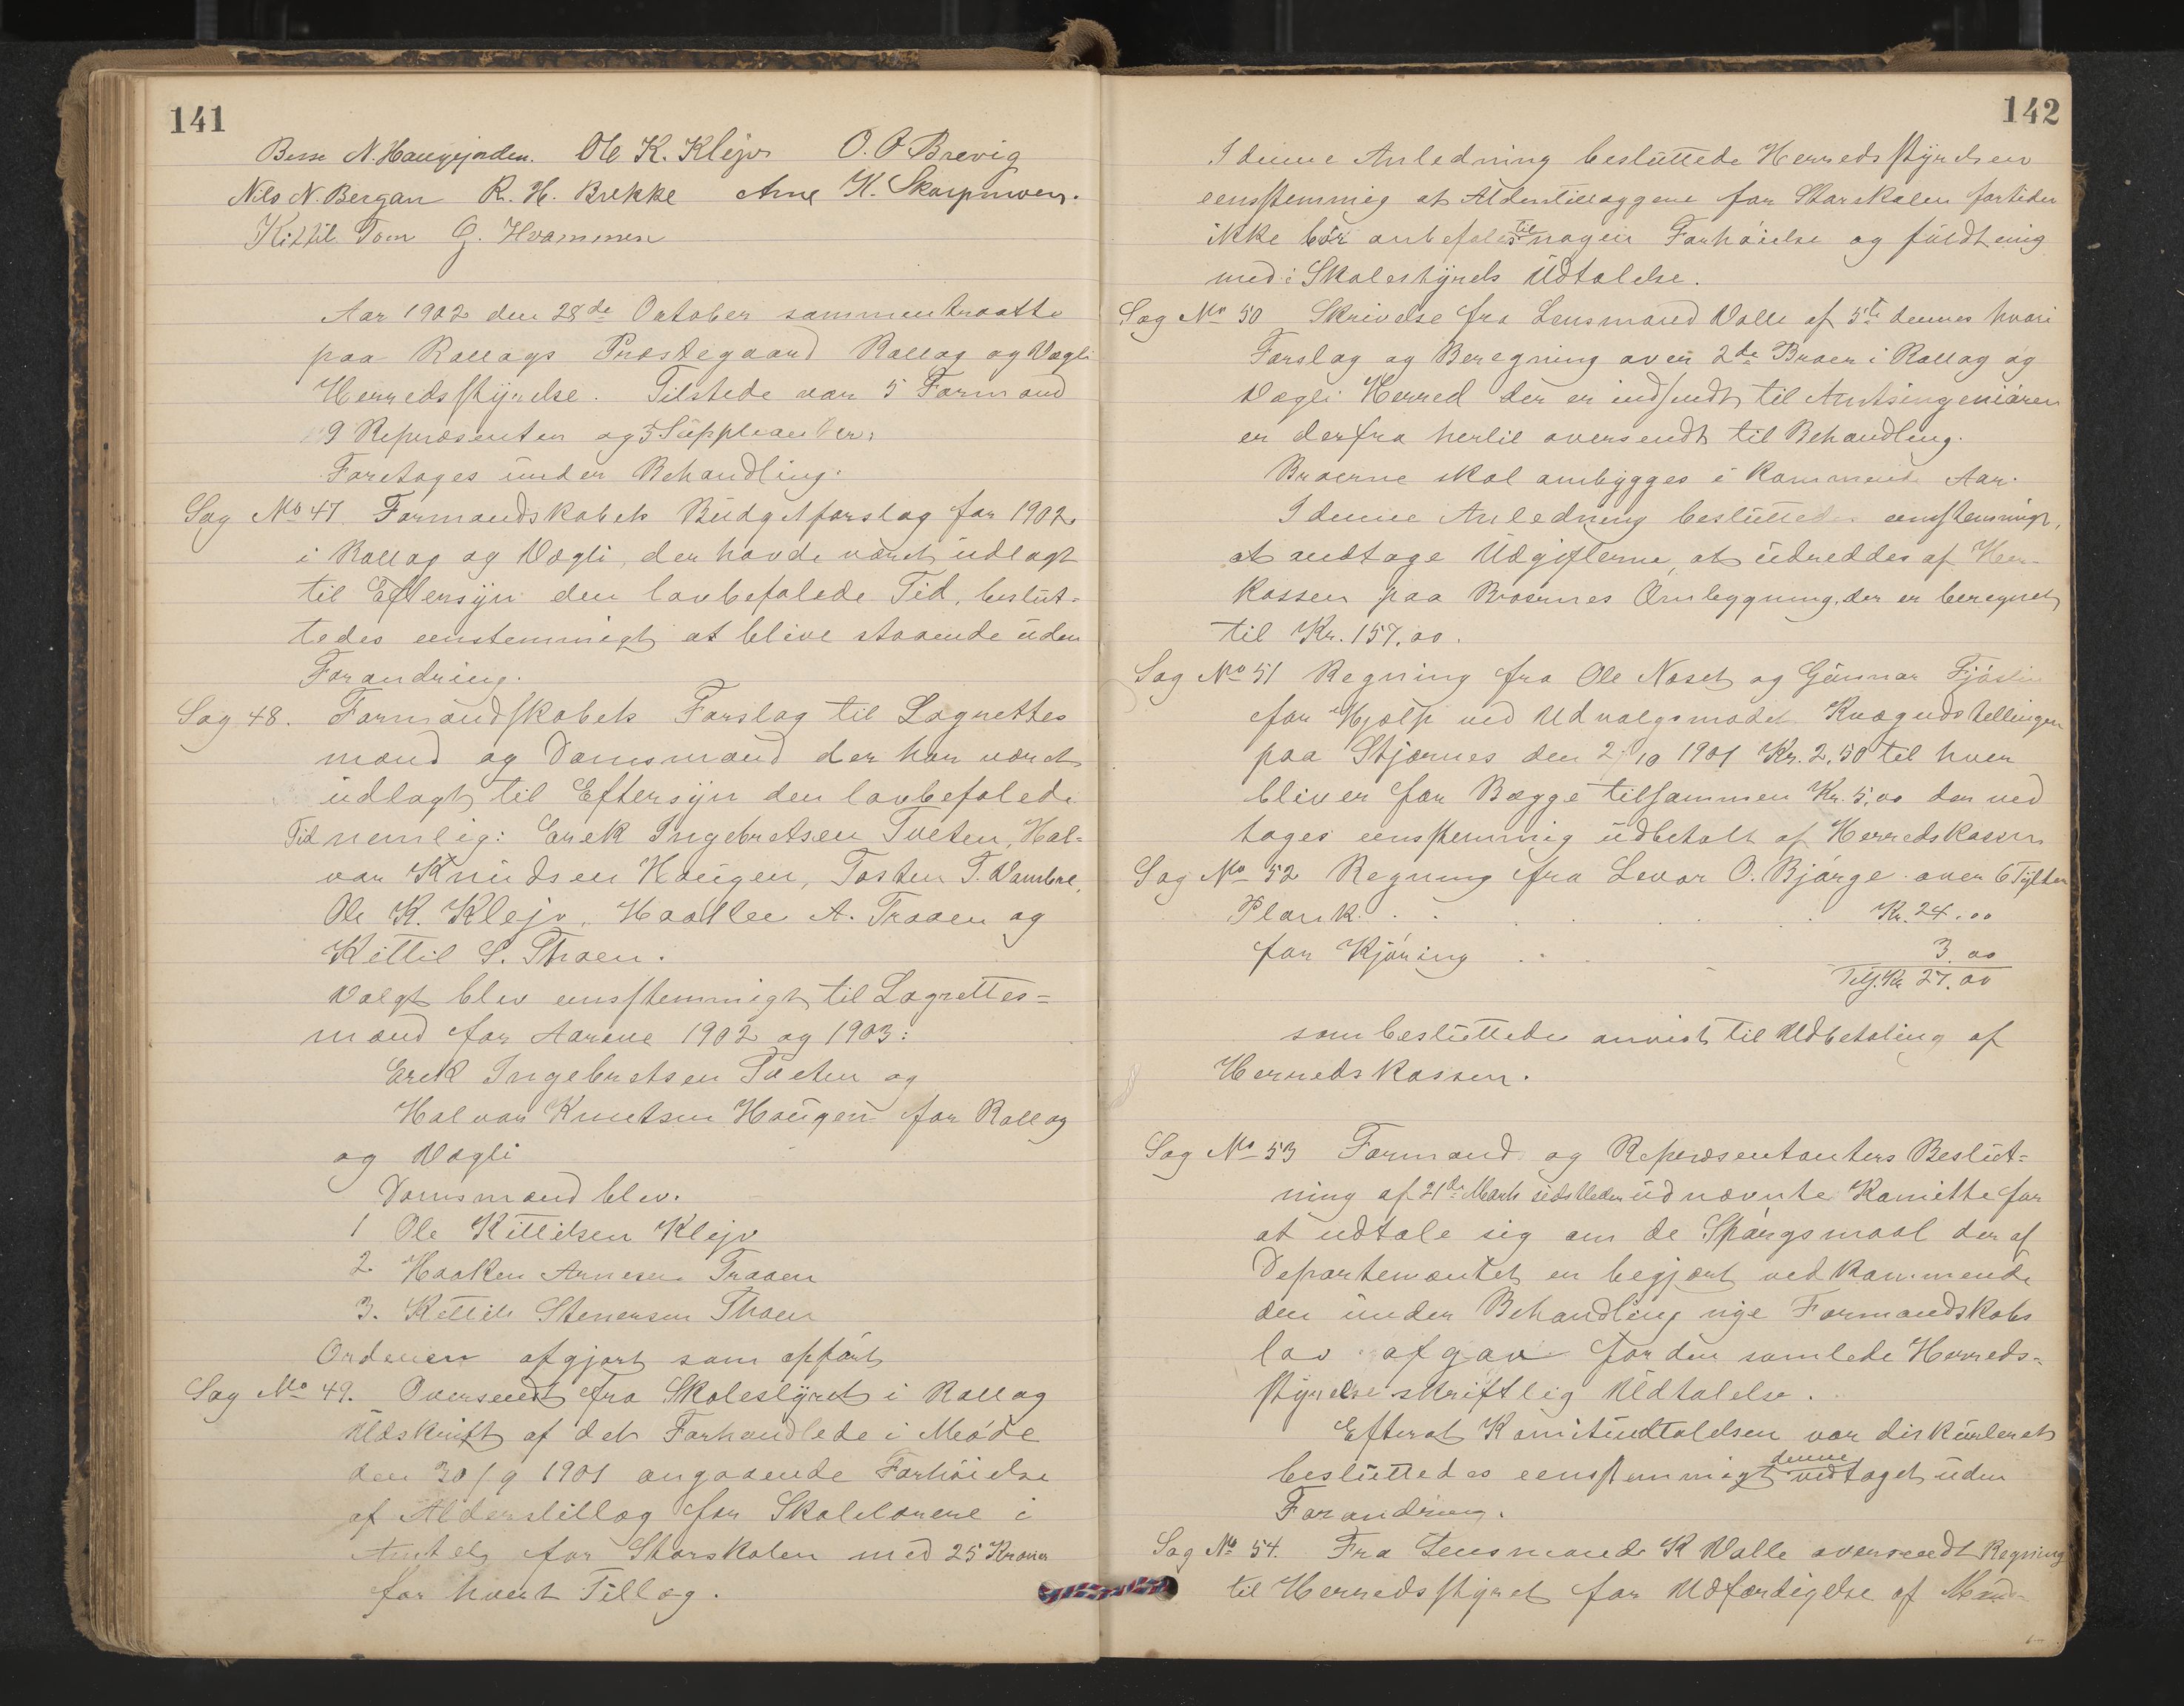 141
Besse N. Haugejorden. Ole K. Klejv O. O Brevig
Nils N. Bergan R. H. Brekke Arne K. Skarpmoen.
Kittil Tom G. Hvammen
Aar 1902 den 28de October sammentraatte
paa Rollags Præstegaard Rollag og Vægli
Herredsstyrelse. Tilstede var 5 Formænd
9 Repræsenter og 5 Suppleanter.
Foretoges under Behandling.
Sag No 47. Formandskabets Budgetforslag for 1902
i Rollag og Vægli, der havde været udlagt
til Eftersyn den lovbefalede Tid, beslut-
tedes eenstemmigt at blive staaende uden
Forandring.
Sag 48. Formandskabets Forslag til Lagrettes
mænd og Domsmænd der har været
udlagt til Eftersyn den lovbefalede
Tid nemlig: Erek Ingebretsen Tveten, Hal-
vor Knudsen Haugen, Tosten T. Vambre,
Ole K. Klejv, Haaken A. Traaen og
Kittil S. Thoen.
Valgt blev eensstemmigt til Lagrettes=
mænd for Aarene 1902 og 1903:
Erek Ingebretsen Tveten og
Halvor Knutsen Haugen for Rollag
og Vægli
Domsmænd blev.
1 Ole Kittilsen Klejv
2 Haaken Arnesen Traaen
3. Kittil Stenersen Thoen
Ordenen afgjort som opført
Sag No 49. Oversendt fra Skolestyret i Rollag
Udskrift af det Forhandlede i Møde
den 30/9 1901 angaaende Forhøielse
af Alderstillæg for Skolelærere i
Amtets for Storskolen med 25 Kroner
for hvert Tillæg.
142
I denne Anledning besluttede Herredsstyrelsen
eensstemmig at Alderstillæggene for Storskolen fortiden
ikke bør anbefales til nogen Forhøielse og fuldt enig
med i Skolestyrets Udtalelse.
Sag No 50 Skrivelse fra Lensmand Valle af 5te dennes hvori
Forslag og Beregning over 2de Broer i Rollag og
Vægli Herred der er indsendt til Amtsingeniøren
er derfra hertil oversendt til Behandling.
Broerne skal ombygges i kommende Aar.
I denne Anledning besluttedes eenstemmigt,
at vedtage Udgifterne, at udreddes af Her-
kassen paa Broernes Ombygning, der er beregnet
til Kr. 157,00.
Sag No 51 Regning fra Ole Næset og Gunnar
for Hjælp ved Udvalgsmødet Kvægudstellingen
paa Stjærnes den 2/10 1901 Kr. 2,50 til hver
bliver for Begge tilsammen Kr. 5,00 der ved
toges eensstemmig udbetalt af Herredskassen
Sag No 52 Regning fra Levor O. Bjørge over 6 Tylter
Plank . . . . . Kr. 24.00
for Kjøring . . . 3.00
Tils. Kr 27.00
som besluttedes anvist til Udbetaling af
Herredskassen.
Sag No 53 Formænd og Repræsentanters Beslut-
ning af 21de Marts sidstleden udnævnte Komitte for
at udtale sig om de Spørgsmaal der af
Departementet er begjært vedkommende
den under Behandling nye Formandskabs
lov afgav for den samlede Herreds-
styrelse skriftlig Udtalelse.
Efterat Komiteudtalelsen var diskuteret
besluttedes eensstemmigt denne vedtaget uden
Forandring.
Sag No 54. Fra Lensmand K Valle oversendt Regning
til Herredsstyret for Udfærdigelse af